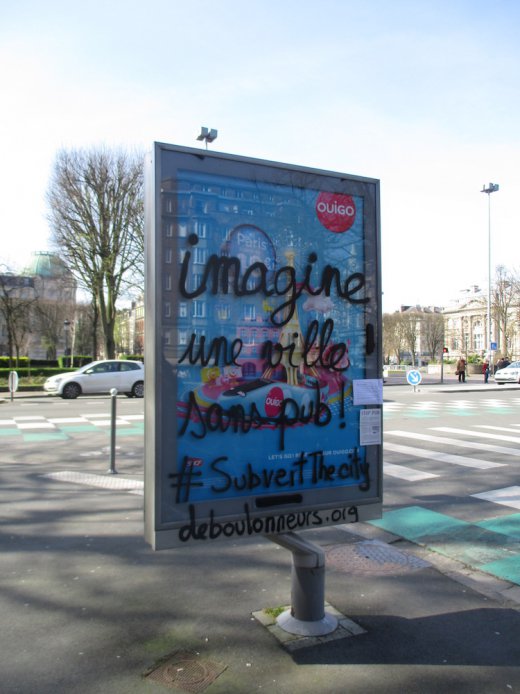 OUIGO
Paris
imagine
une ville
sans pub!
OUIGO
#SubvertTheCity
deboulonneurs.org